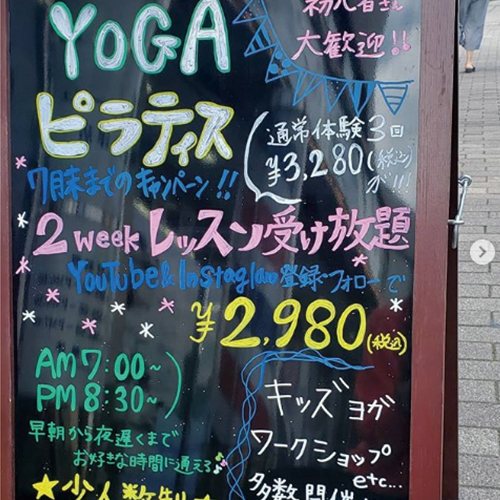 YOGA
初心者さん
大歓迎!!
ピラティス
通常体験3回
¥3,280(税込)
が!!!
7月末までのキャンペーン!!
2weekレッスン受け放題
YouTube&Instaglam登録・フォローで
¥2,980(税込)
AM7:00~
PM8:30~
早朝から夜遅くまで
お好きな時間に通える♪
キッズヨガ
ワークショップ
etc...
多数開催
★少人数制